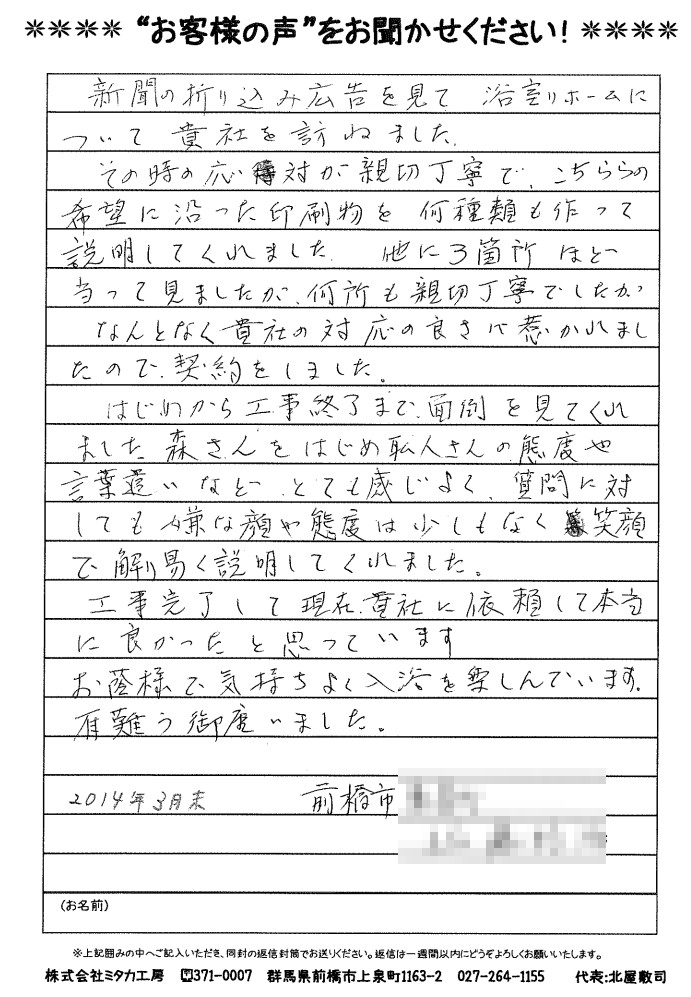 ✳✳✳✳ “お客様の声”をお聞かせください! ✳✳✳✳
新聞の折り込み広告を見て 浴室リホームに
ついて 貴社を訪ねました。
その時の応対が親切丁寧で、こちららの
希望に沿った印刷物を 何種類も作って
説明してくれました。 他に3箇所ほど
当って見ましたが、何所も親切丁寧でしたが
なんとなく貴社の対応の良さに惹かれまし
たので、契約をしました。
はじめから工事終了まで、面倒を見てくれ
ました 森さんをはじめ職人さんの態度や
言葉遣いなど とても感じよく、質問に対
しても 嫌な顔や態度は少しもなく 笑顔
で 解り易く説明してくれました。
工事完了して 現在、貴社に依頼して本当
に良かったと思っています
お蔭様で気持ちよく入浴を楽しんでいます。
有難う御座いました。
2014年3月末 前橋市
(お名前)
※上記囲みの中へご記入いただき、同封の返信封筒でお送りください。返信は一週間以内にどうぞよろしくお願いいたします。
株式会社ミタカ工房 〒371-0007 群馬県前橋市上泉町1163-2 027-264-1155 代表:北屋敷司